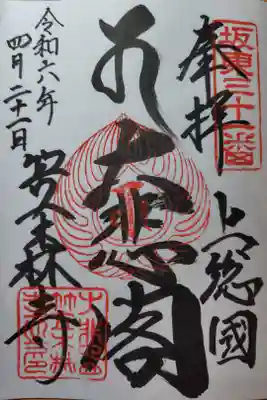 坂東三十一番
奉拝
上総國
大悲閣
令和六年
四月二十一日
笠森寺